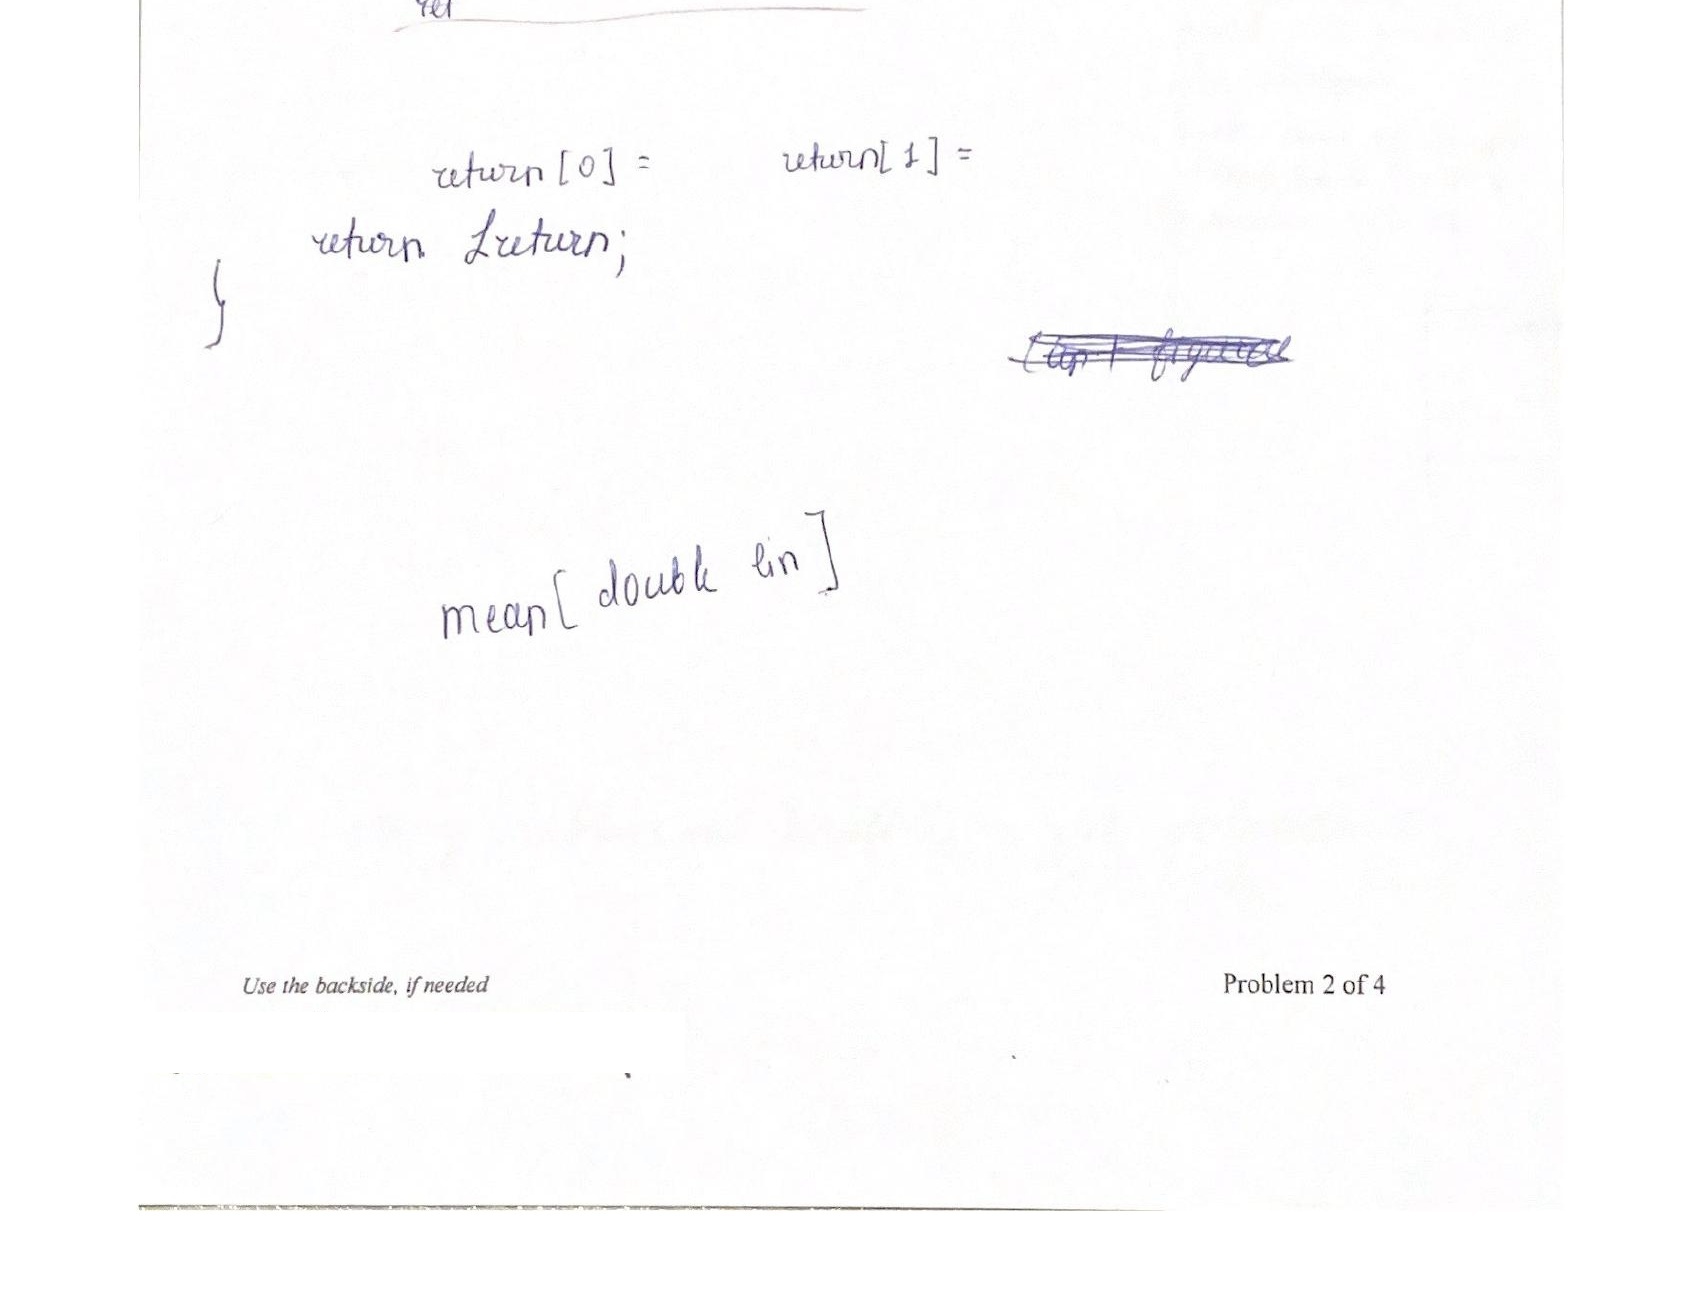 return [0] = return[1] =
return Lreturn;
}
mean[double lin]
Use the backside, if needed Problem 2 of 4